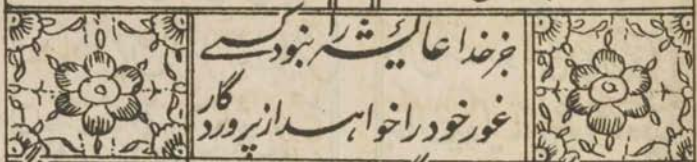 جز خدا عائیشه را نبود کسے
غور خود را خواهد از پروردگار